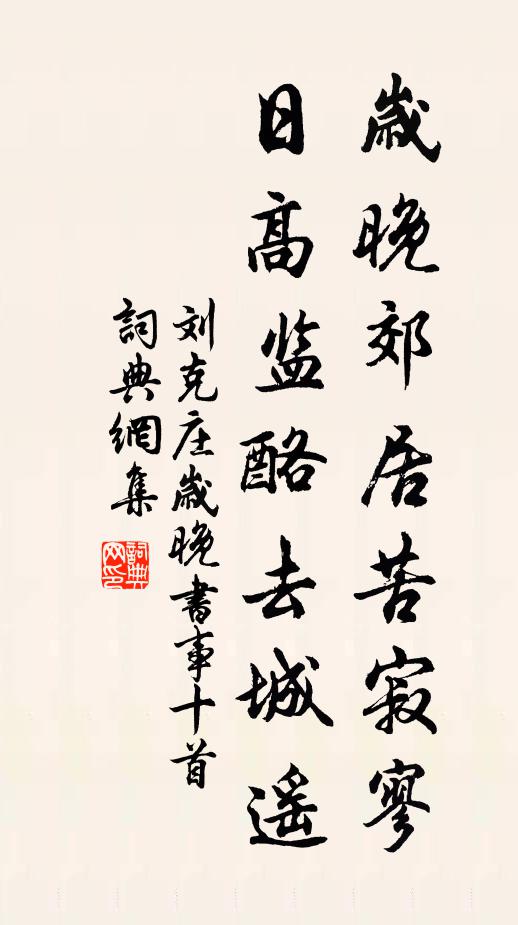 歲晚郊居苦寂寥
日高监酪去城遥
刘克庄歲晚書事十首
詞典網集
詞典网印